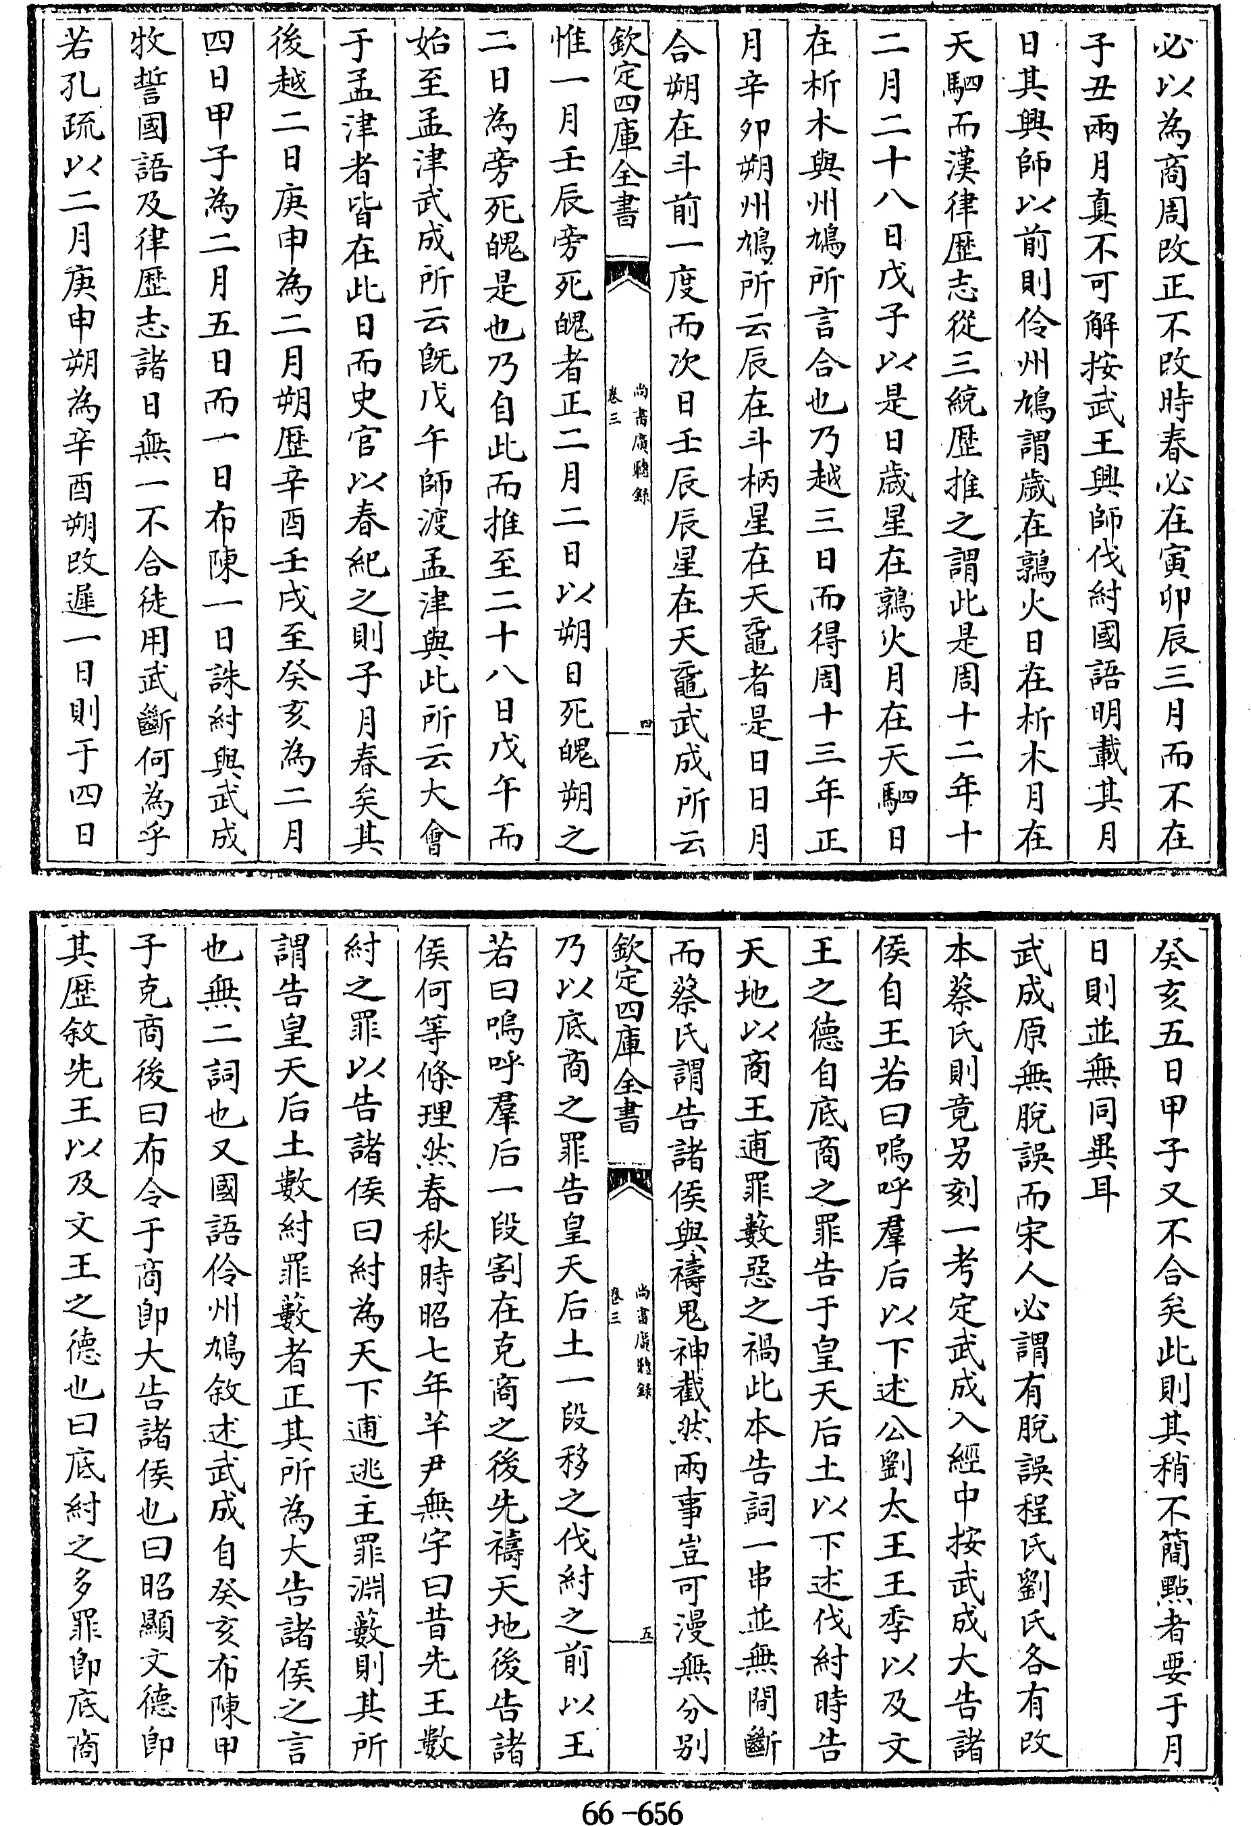 必以為商周改正不改時春必在寅卯辰三月而不在
子丑兩月真不可解按武王興師伐紂國語明載其月
日其興師以前則伶州鳩謂歲在鶉火日在析木月在
天駟而漢律歷志從三統歷推之謂此是周十二年十
二月二十八日戊子以是日歲星在鶉火月在天駟日
在析木與州鳩所言合也乃越三日而得周十三年正
月辛卯朔州鳩所云辰在斗柄星在天黿者是日日月
合朔在斗前一度而次日壬辰辰星在天黿武成所云
欽定四庫全書
尚書廣聽錄
卷三
四
惟一月壬辰旁死魄者正二月二日以朔日死魄朔之
二日為旁死魄是也乃自此而推至二十八日戊午而
始至孟津武成所云既戊午師渡孟津與此所云大會
于孟津者皆在此日而史官以春紀之則子月春矣其
後越二日庚申為二月朔歷辛酉壬戌至癸亥為二月
四日甲子為二月五日而一日布陳一日誅紂與武成
牧誓國語及律歷志諸日無一不合徒用武斷何為乎
若孔疏以二月庚申朔為辛酉朔改遲一日則于四日
癸亥五日甲子又不合矣此則其稍不簡點者要于月
日則並無同異耳
武成原無脫誤而宋人必謂有脫誤程氏劉氏各有改
本蔡氏則竟另刻一考定武成入經中按武成大告諸
侯自王若曰嗚呼羣后以下述公劉太王王季以及文
王之德自底商之罪告于皇天后土以下述伐紂時告
天地以商王逋罪藪惡之禍此本告詞一串並無間斷
而蔡氏謂告諸侯與禱鬼神截然兩事豈可漫無分別
欽定四庫全書
尚書廣聽錄
卷三
五
乃以底商之罪告皇天后土一段移之伐紂之前以王
若曰嗚呼羣后一段割在克商之後先禱天地後告諸
侯何等條理然春秋時昭七年芊尹無宇曰昔先王數
紂之罪以告諸侯曰紂為天下逋逃主罪淵藪則其所
謂告皇天后土數紂罪藪者正其所為大告諸侯之言
也無二詞也又國語伶州鳩敘述武成自癸亥布陳甲
子克商後曰布令于商即大告諸侯也曰昭顯文德即
其歷敘先王以及文王之德也曰底紂之多罪即底商
66-656